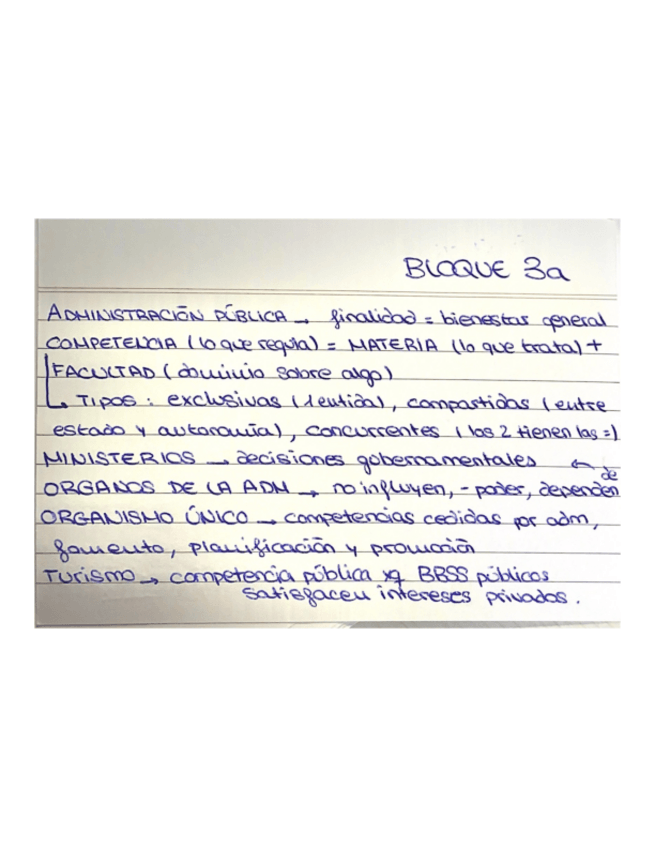 BLOQUE 3a
ADMINISTRACIÓN PÚBLICA → finalidad = bienestar general
COMPETENCIA (lo que regula) = MATERIA (lo que trata) +
FACULTAD (dominio sobre algo)
↳ TIPOS: exclusivas (1 entidad), compartidas (entre
estado y autonomía), concurrentes (los 2 tienen las =)
MINISTERIOS → decisiones gubernamentales ←
ÓRGANOS DE LA ADM → no influyen, - poder, dependen de
ORGANISMO ÚNICO → competencias cedidas por adm,
fomento, planificación y promoción
TURISMO → competencia pública xq BBSS públicos
satisfacen intereses privados.